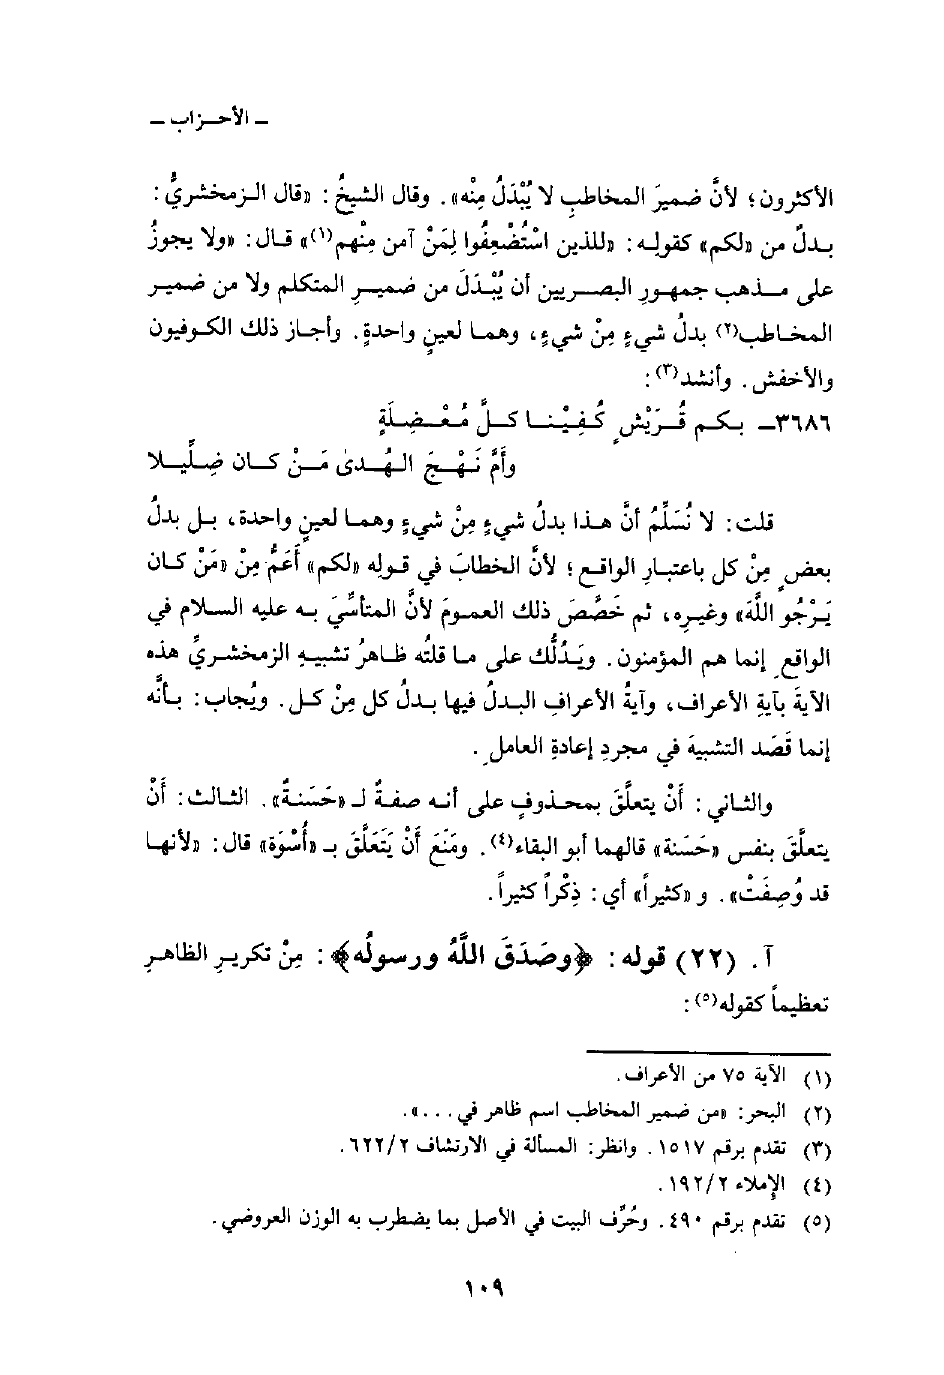 ـ الأحـزاب ـ
الأكثرون؛ لأنَّ ضميرَ المخاطبِ لا يُبْدَلُ مِنْه». وقال الشيخُ: «قال الـزمخشريُّ:
بـدلٌ من «لكم» كقولِه: «للذين اسْتُضْعِفُوا لِمَنْ آمن مِنْهم(١)» قـال: «ولا يجوزُ
على مـذهب جمهورِ البصـريين أن يُبْدَلَ من ضميـرِ المتكلم ولا من ضميـر
المخـاطب(٢) بدلُ شيءٍ مِنْ شيءٍ، وهمـا لعينٍ واحدةٍ. وأجـاز ذلك الكـوفيون
والأخفش. وأنشد(٣):
٣٦٨٦ـ بـكـم قُـرَيْشٍ كُـفِيْنـا كـلَّ مُـعْـضِـلَةٍ
وأَمَّ نَـهْـجَ الهُـدىٰ مَـنْ كـان ضِلِّيـلا
قلت: لا نُسَلِّمُ أنَّ هـذا بدلُ شيءٍ مِنْ شيءٍ وهمـا لعينٍ واحدة، بـل بدلُ
بعضٍ مِنْ كل باعتبـارِ الواقـع؛ لأنَّ الخطابَ في قـولِه «لكم» أَعَمُّ مِنْ «مَنْ كـان
يَـرْجُو اللَّهَ» وغيرِه، ثم خَصَّصَ ذلك العمومَ لأنَّ المتأسِّيَ بـه عليه السـلام في
الواقعِ إنما هم المؤمنون. ويَـدُلُّك على مـا قلتُه ظاهرُ تشبيهِ الزمخشـريِّ هذه
الآيةَ بآيةِ الأعراف، وآيةُ الأعرافِ البـدلُ فيها بـدلُ كل مِنْ كـل. ويُجاب: بـأنَّه
إنما قَصَد التشبيهَ في مجردِ إعادةِ العاملِ.
والثـاني: أَنْ يتعلَّقَ بمحذوفٍ على أنـه صفةٌ لـ «حَسَنةٌ». الثالث: أَنْ
يتعلَّقَ بنفس «حَسَنة» قالهما أبو البقاء(٤). ومَنَعَ أَنْ يَتَعَلَّقَ بـ «أُسْوَة» قال: «لأنهـا
قد وُصِفَتْ». و «كثيراً» أي: ذِكْراً كثيراً.
آ. (٢٢) قوله: ﴿وصَدَقَ اللَّهُ ورسولُه﴾: مِنْ تكريرِ الظاهرِ
تعظيماً كقوله(٥):
(١) الآية ٧٥ من الأعراف.
(٢) البحر: «من ضمير المخاطب اسم ظاهر في...».
(٣) تقدم برقم ١٥١٧. وانظر: المسألة في الارتشاف ٦٢٢/٢.
(٤) الإملاء ١٩٢/٢.
(٥) تقدم برقم ٤٩٠. وحُرِّف البيت في الأصل بما يضطرب به الوزن العروضي.
١٠٩